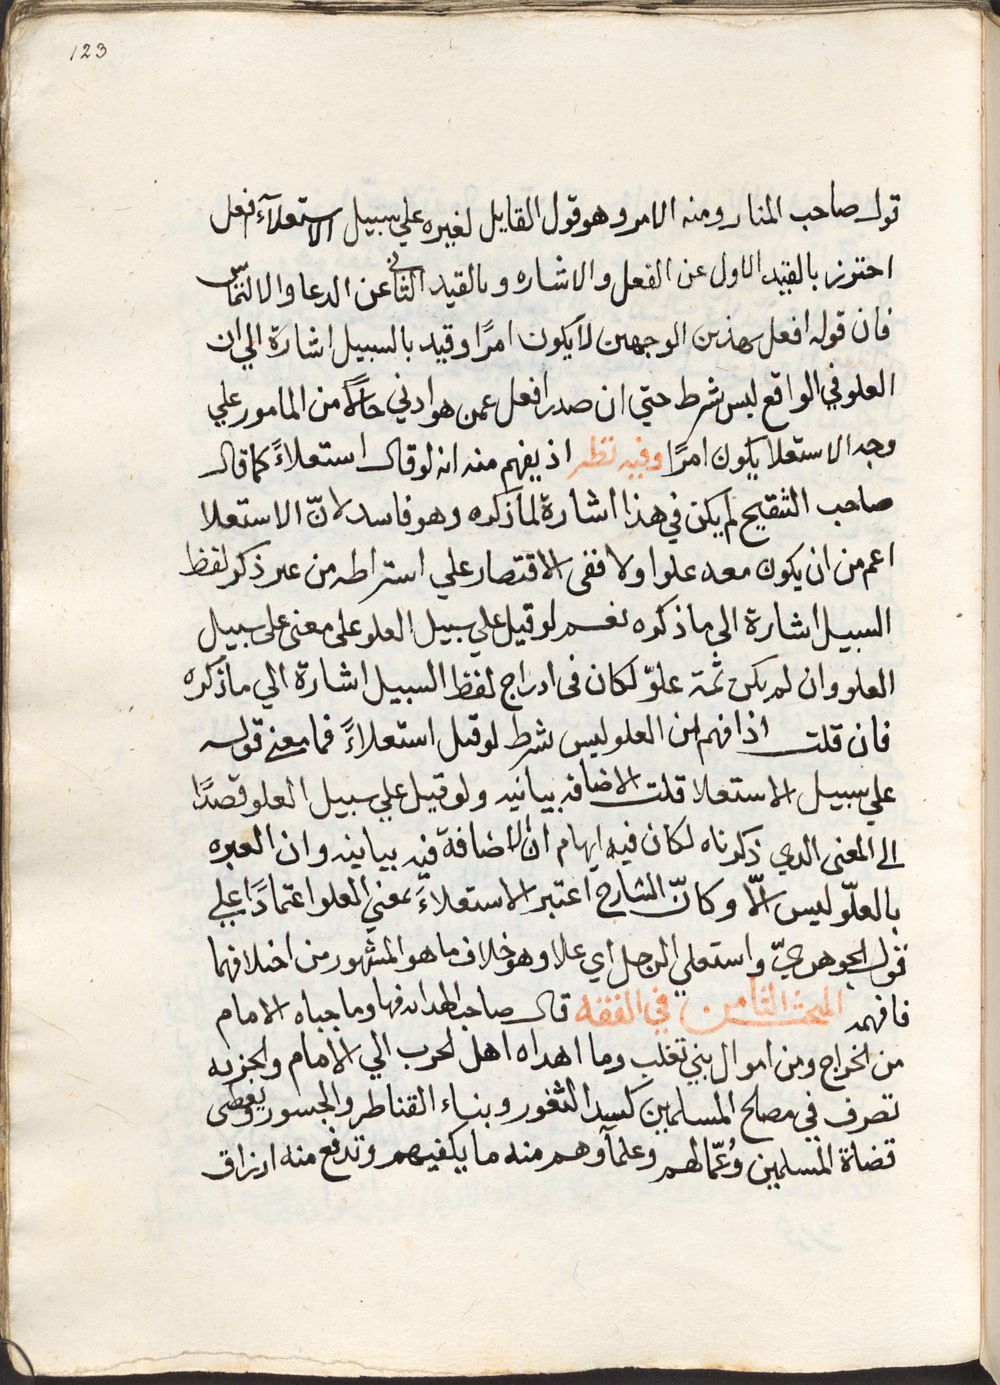 123
قول صاحب المنار ومنه الامر وهو قول القايل لغيره علي سبيل الاستعلآء فعل
احترز بالقيد الاول عن الفعل والاشاره وبالقيد الثاني عن الدعا والالتماس
فان قوله افعل بهذين الوجهين لايكون امرًا وقيد بالسبيل اشارة الي ان
العلو في الواقع ليس شرط حتي ان صدر افعل عمن هو ادني حالًا من المامور علي
وجه الاستعلا يكون امرًا وفيه نظر اذ يفهم منه انه لو قال استعلاءً كما قال
صاحب التنقيح لم يكن في هذا اشارة لما ذكره وهو فاسد لانّ الاستعلا
اعم من ان يكون معه علوا ولا ففى الاقتصار علي استراطه من عير ذكر لفظ
السبيل اشارة الى ما ذكره نعم لو قيل علي سبيل العلو على معنى على سبيل
العلو وان لم يكن ثمة علوّ لكان فى ادراج لفظ السبيل اشارة الي ماذكره
فان قلت اذا فهم ان العلو ليس بشرط لو قيل استعلاءً فما معنى قوله
علي سبيل الاستعلا قلت الاضافه بيانيه ولو قيل علي سبيل العلو قصدًا
الى المعنى الدي ذكرناه لكان فيه ايهام ان الاضافة فيه بيانيه وان العبره
بالعلّو ليس الّا وكانّ الشارح اعتبر الاستعلاءَ بمعني العلو اعتمادًا علي
قول الجوهريّ واستعلي الرجل اي علا وهو خلاف ما هو المشهور من اختلافهما
فافهمه المبحث الثامن في الفقه قال صاحب الهدايه فيها وما جباه الامام
من الخراج ومن اموال بني تغلب وما اهداه اهل الحرب الي الامام والجزيه
تصرف في مصلح المسلمين كسد الثغور وبناء القناطر والجسور ويعطى
قضاة المسلمين وعُمّالهم وعلمآوهم منه ما يكفيهم وتدفع منه ارزاق